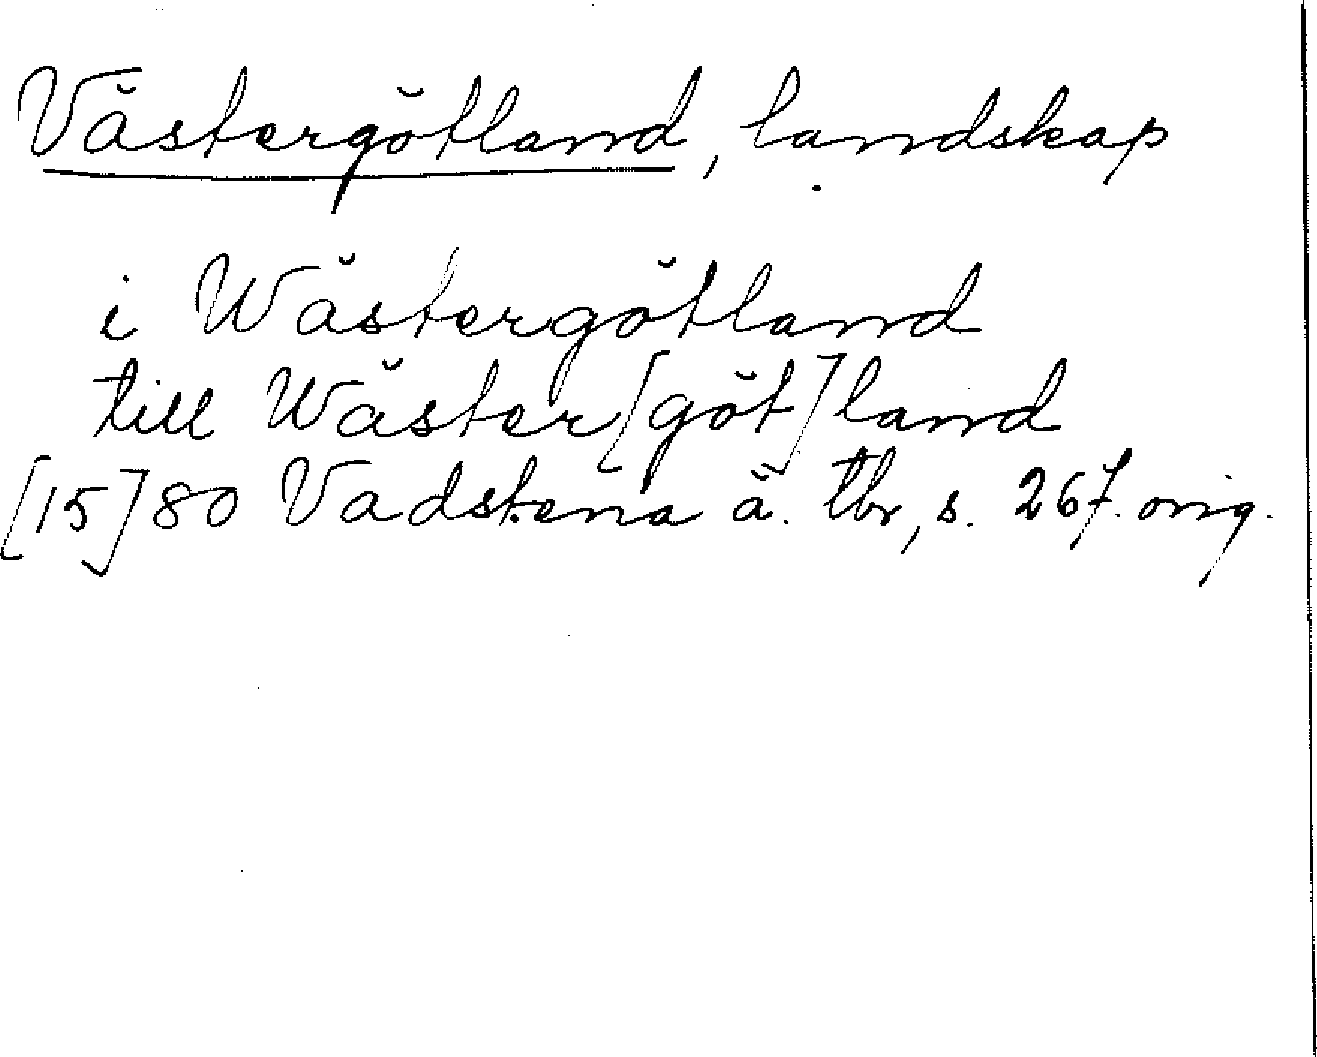 Västergötland, landskap
i Wästergötland
till Wäster[göt]land
[15]80 Vadstena ä. tbr, s. 267. orig.